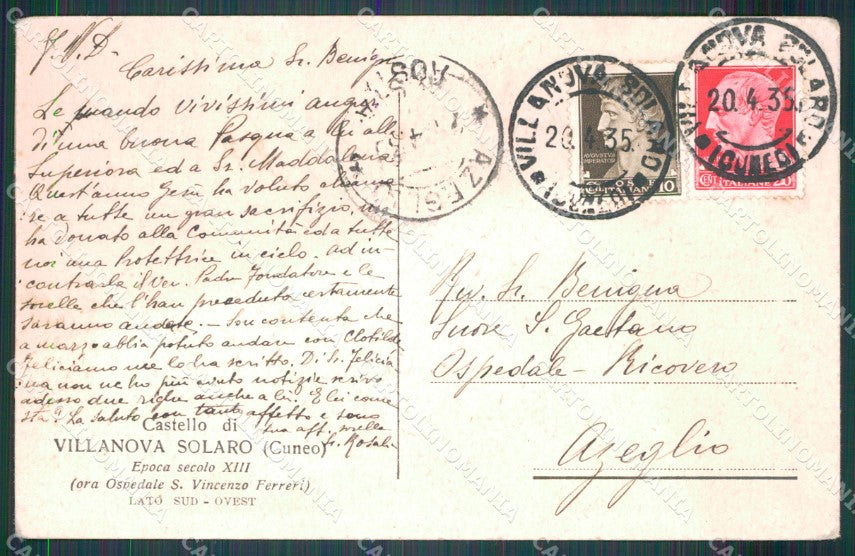 J. M. D.
Carissima Sr. Benigna
Le mando vivissimi auguri
di una buona Pasqua a lei alla
Superiora ed a Sr. Maddalena
Quest'anno Gesù ha voluto
re a tutte un gran sacrifizio, ma
ha donato alla Comunità e da tutte
noi una Protettrice in cielo. ad in=
contrarla il Ven. Padre Fondatore e le
sorelle che l'han preceduta certamente
saranno andate. — Son contenta che
a marzo abbia potuto andare con Clotilde
Feliciamo me lo ha scritto. Di Sr. Felicia=
na non ne ho più avuto notizie scrivo
adesso due righe anche a lei. E lei come
sta? La saluto con tanto affetto e sono
sua aff. sorella
Sr. Rosalia
Castello di
VILLANOVA SOLARO (Cuneo)
Epoca secolo XIII
(ora Ospedale S. Vincenzo Ferreri)
LATO SUD - OVEST
AZEGLIO
AOSTA
VILLANOVA SOLARO
20.4.35.
(CUNEO)
AVGVSTVS
IMPERATOR
POSTE ITALIANE
10
VILLANOVA SOLARO
20.4.35.
(CUNEO)
CENT ITALIANE 20
Rev. Sr. Benigna
Suore S. Gaetano
Ospedale - Ricovero
Azeglio
CARTOLINOMANIA